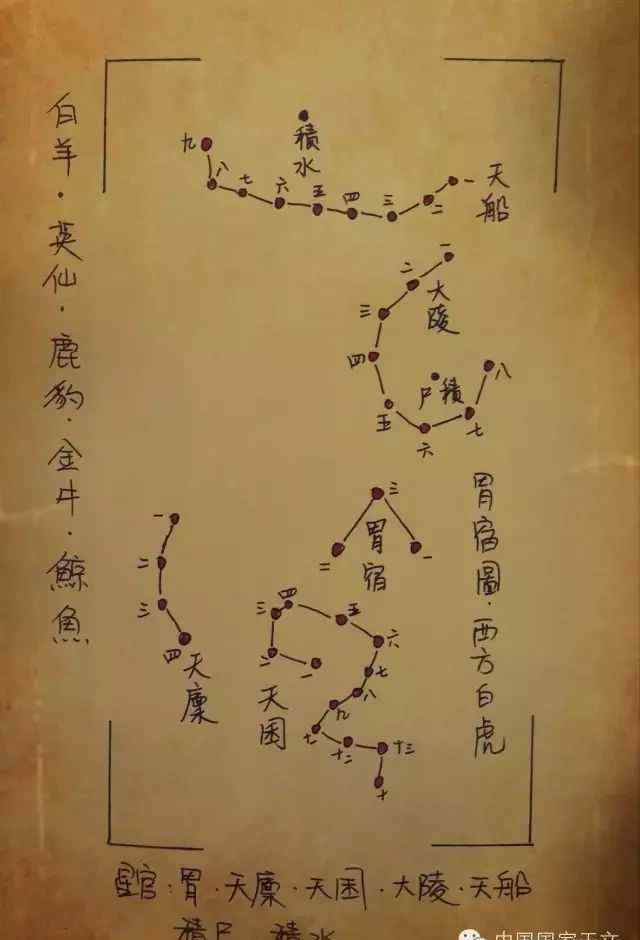 白羊·英仙·鹿豹·金牛·鯨魚
積水
九
八
七
六
五
四
三
二
一
天船
一
二
大陵
三
四
積尸
八
五
六
七
三
胃宿
二
一
胃宿圖·西方白虎
一
二
三
四
天廩
四
三
五
六
二
一
七
八
天囷
九
十二
十三
十
星官:胃·天廩·天囷·大陵·天船
積尸 積水
中国国家天文